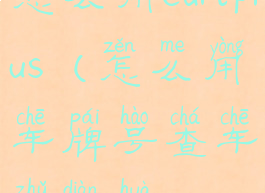 怎么用carapl
zěn me yòng
us（怎么用
chē pái hào chá chē
车牌号查车
zhǔ diàn huà